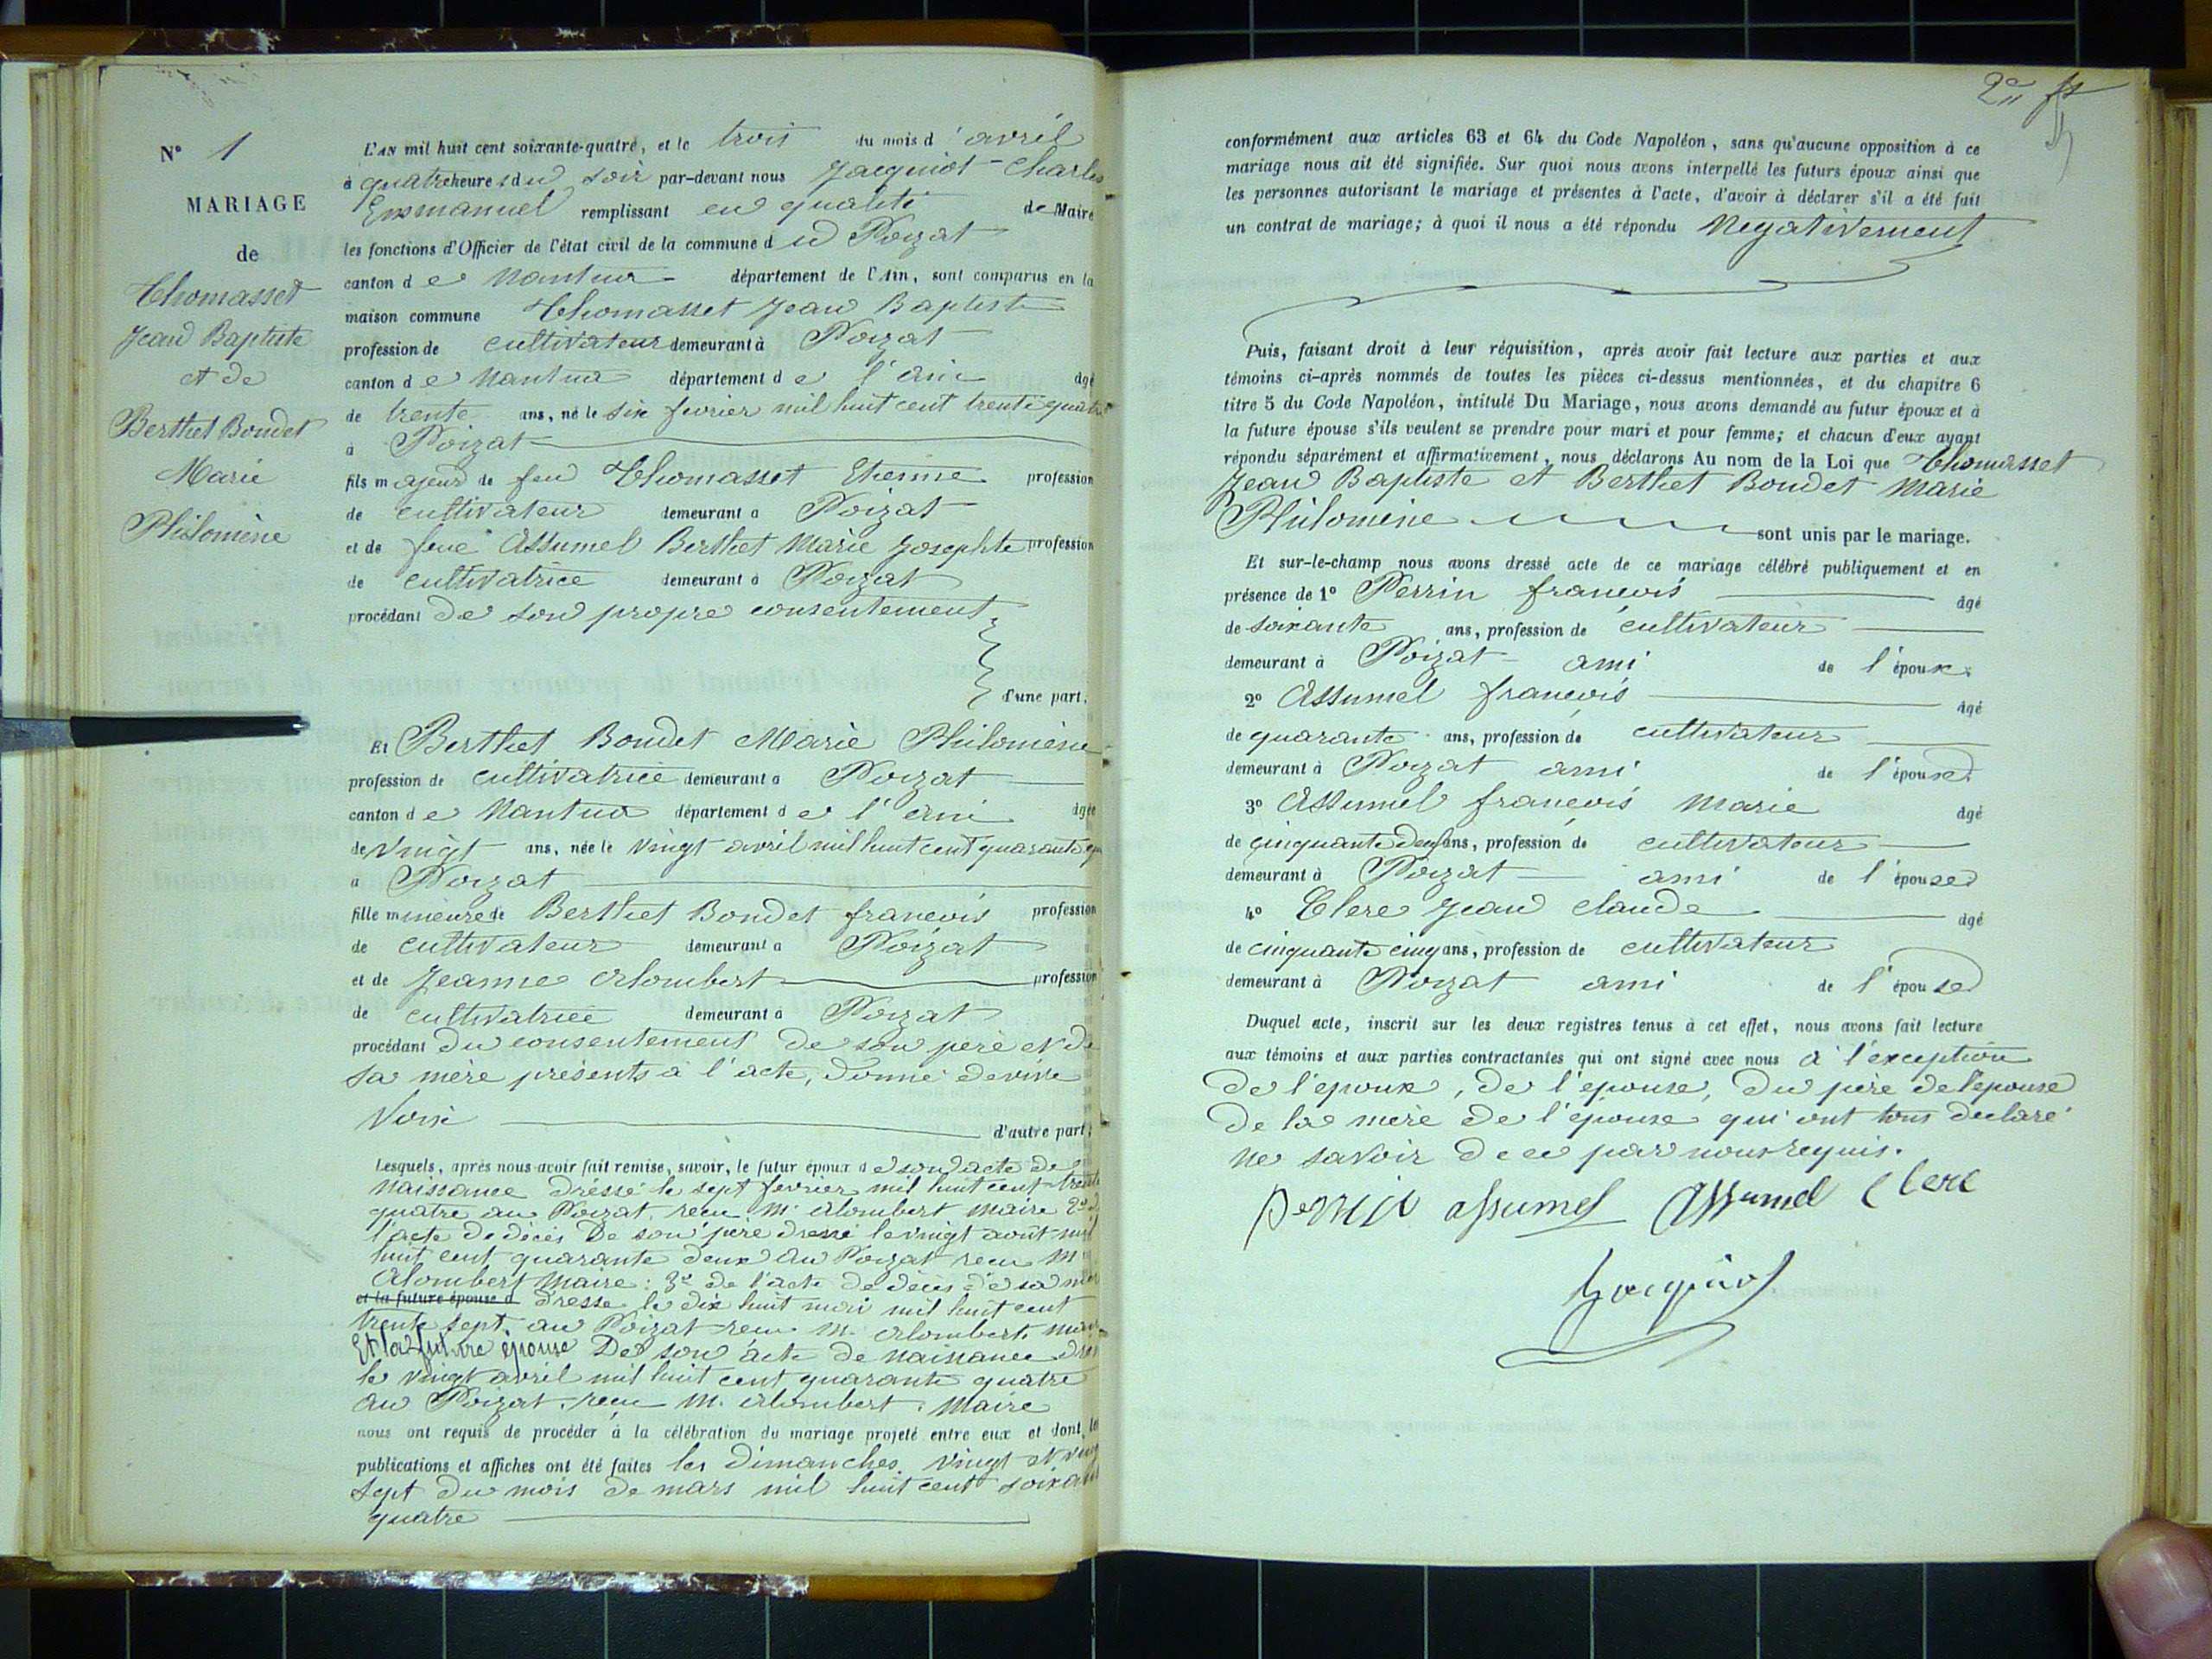 N° 1
MARIAGE
de
Thomasset
Jean Baptiste
et de
Berthet Bondet
Marie
Philomène
L'AN mil huit cent soixante-quatre, et le trois du mois d'avril
à quatre heures du soir par-devant nous Jacquiot Charles
Emmanuel remplissant en qualité de Maire
les fonctions d'Officier de l'état civil de la commune du Poizat
canton de Nantua département de l'Ain, sont comparus en la
maison commune Thomasset Jean Baptiste
profession de cultivateur demeurant à Poizat
canton de Nantua département de l'ain âgé
de trente ans, né le six fevrier mil huit cent trente quatre
à Poizat
fils majeur de feu Thomasset Etienne profession
de cultivateur demeurant à Poizat
et de feue Assumel Berthet Marie Josephte profession
de cultivatrice demeurant à Poizat
procédant de son propre consentement
d'une part.
Et Berthet Bondet Marie Philomène
profession de cultivatrice demeurant à Poizat
canton de Nantua département de l'ain âgée
de vingt ans, née le vingt avril mil huit cent quarante
à Poizat
fille mineure de Berthet Bondet françois profession
de cultivateur demeurant à Poizat
et de Jeanne Alombert profession
de cultivatrice demeurant à Poizat
procédant du consentement de son père et de
sa mère présents à l'acte, donné de vive
Voix d'autre part;
Lesquels, après nous avoir fait remise, savoir, le futur époux de son acte de
naissance dressé le sept fevrier mil huit cent trente
quatre au Poizat reçu M. Alombert maire 2°
l'acte de décès De son père dressé le vingt août mil
huit cent quarante deux au Poizat reçu M
Alombert Maire : 3° de l'acte de décès de sa mère
et la future épouse d dressé le dix huit mai mil huit cent
trente sept au Poizat reçu M. Alombert maire
Et la future épouse De son acte de naissance
le vingt avril mil huit cent quarante quatre
au Poizat, reçu M. Alombert, Maire
nous ont requis de procéder à la célébration du mariage projeté entre eux et dont les
publications et affiches ont été faites les dimanches vingt et vingt
sept du mois de mars mil huit cent soixante
quatre
conformément aux articles 63 et 64 du Code Napoléon, sans qu'aucune opposition à ce
mariage nous ait été signifiée. Sur quoi nous avons interpellé les futurs époux ainsi que
les personnes autorisant le mariage et présentes à l'acte, d'avoir à déclarer s'il a été fait
un contrat de mariage; à quoi il nous a été répondu Negativement
Puis, faisant droit à leur réquisition, après avoir fait lecture aux parties et aux
témoins ci-après nommés de toutes les pièces ci-dessus mentionnées, et du chapitre 6
titre 5 du Code Napoléon, intitulé Du Mariage, nous avons demandé au futur époux et à
la future épouse s'ils veulent se prendre pour mari et pour femme; et chacun d'eux ayant
répondu séparément et affirmativement, nous déclarons Au nom de la Loi que Thomasset
Jean Baptiste et Berthet Bondet Marie
Philomène sont unis par le mariage.
Et sur-le-champ nous avons dressé acte de ce mariage célébré publiquement et en
présence de 1° Perrin françois âgé
de soixante ans, profession de cultivateur
demeurant à Poizat ami de l'époux.
2° Assumel françois âgé
de quarante ans, profession de cultivateur
demeurant à Poizat ami de l'épouse
3° Assumel françois Marie âgé
de cinquante deux ans, profession de cultivateur
demeurant à Poizat ami de l'épouse
4° Clerc Jean Claude âgé
de cinquante cinq ans, profession de cultivateur
demeurant à Poizat ami de l'épouse
Duquel acte, inscrit sur les deux registres tenus à cet effet, nous avons fait lecture
aux témoins et aux parties contractantes qui ont signé avec nous à l'exception
de l'epoux, de l'epouse, du père de l'epouse
de la mère de l'épouse qui ont tous declaré
ne savoir de ce par nous requis.
Perrin assumel Assumel Clerc
Jacquiot